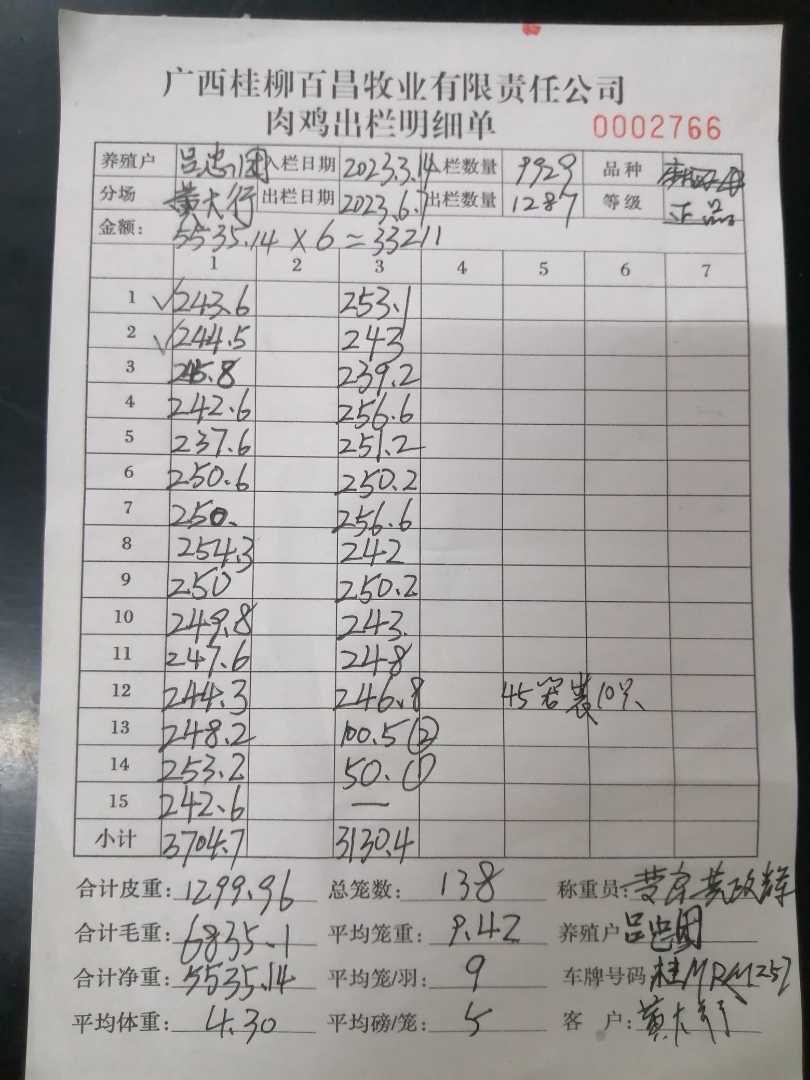 广西桂柳百昌牧业有限责任公司
肉鸡出栏明细单 0002766
养殖户 吕忠团 入栏日期 2023.3.14 入栏数量 9929 品种
分场 黄大行 出栏日期 2023.6.7 出栏数量 1287 等级 正品
金额: 5535.14×6=33211
1 2 3 4 5 6 7
1 √243.6 253.1
2 √244.5 243
3 245.8 239.2
4 242.6 256.6
5 237.6 251.2
6 250.6 250.2
7 250. 256.6
8 254.3 242
9 250 250.2
10 249.8 243.
11 247.6 248
12 244.3 246.8 45笼装10只
13 248.2 100.5②
14 253.2 50.①
15 242.6 —
小计 3704.7 3130.4
合计皮重: 1299.96 总笼数: 138 称重员: 黄政辉
合计毛重: 6835.1 平均笼重: 9.42 养殖户 吕忠团
合计净重: 5535.14 平均笼/羽: 9 车牌号码: 桂MRM257
平均体重: 4.30 平均磅/笼: 5 客户: 黄大行